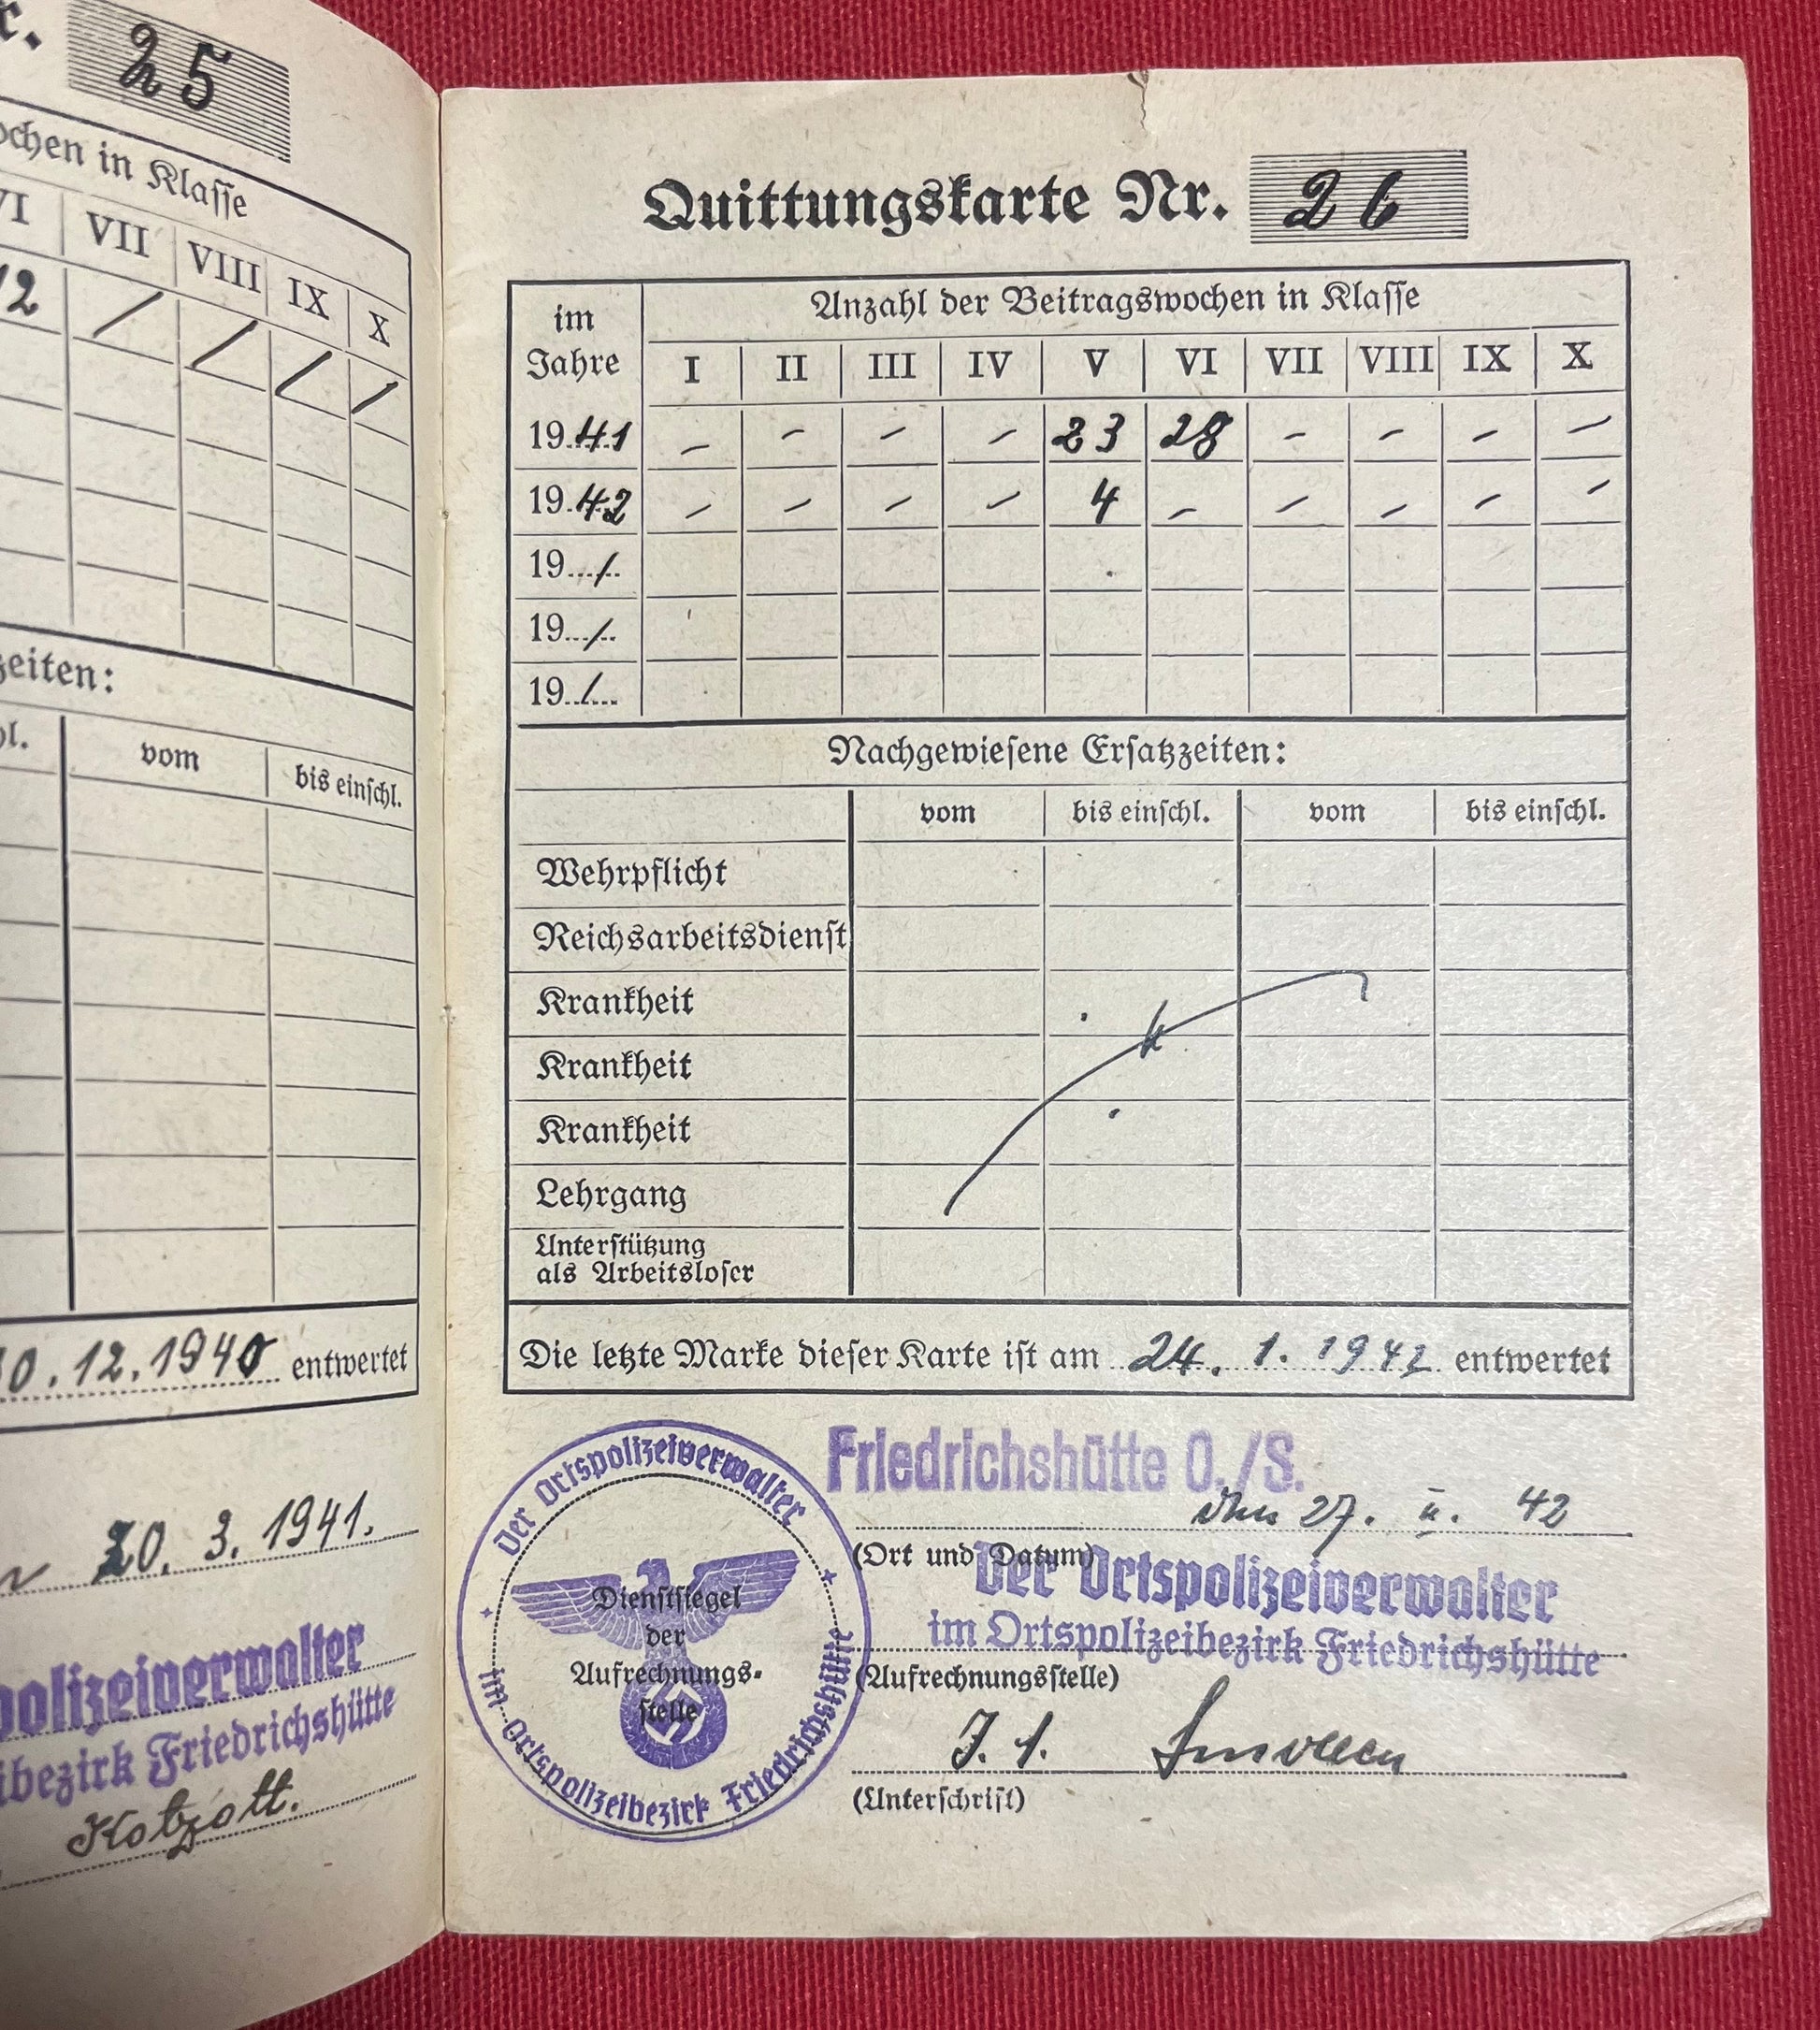 r. 25
ochen in Klaſſe
VI VII VIII IX X
12 / / / /
zeiten:
hl. vom bis einſchl.
30.12.1940 entwertet
20. 3. 1941.
polizeiverwalter
ibezirk Friedrichshütte
Kotzott.
Quittungskarte Nr. 26
im Jahre
Anzahl der Beitragswochen in Klaſſe
I II III IV V VI VII VIII IX X
1941 – – – – 23 28 – – – –
1942 – – – – 4 – – – – –
19 /
19 /
19 /
Nachgewieſene Erſatzzeiten:
vom bis einſchl. vom bis einſchl.
Wehrpflicht
Reichsarbeitsdienſt
Krankheit
Krankheit
Krankheit
Lehrgang
Unterſtützung
als Arbeitsloſer
Die letzte Marke dieſer Karte iſt am 24. 1. 1942 entwertet
Friedrichshütte O./S.
den 27. II. 42
(Ort und Datum)
Der Ortspolizeiverwalter
im Ortspolizeibezirk Friedrichshütte
(Aufrechnungsſtelle)
(Unterſchrift)
Der Ortspolizeiverwalter
im Ortspolizeibezirk Friedrichshütte
Dienſtſiegel
der
Aufrechnungs-
ſtelle